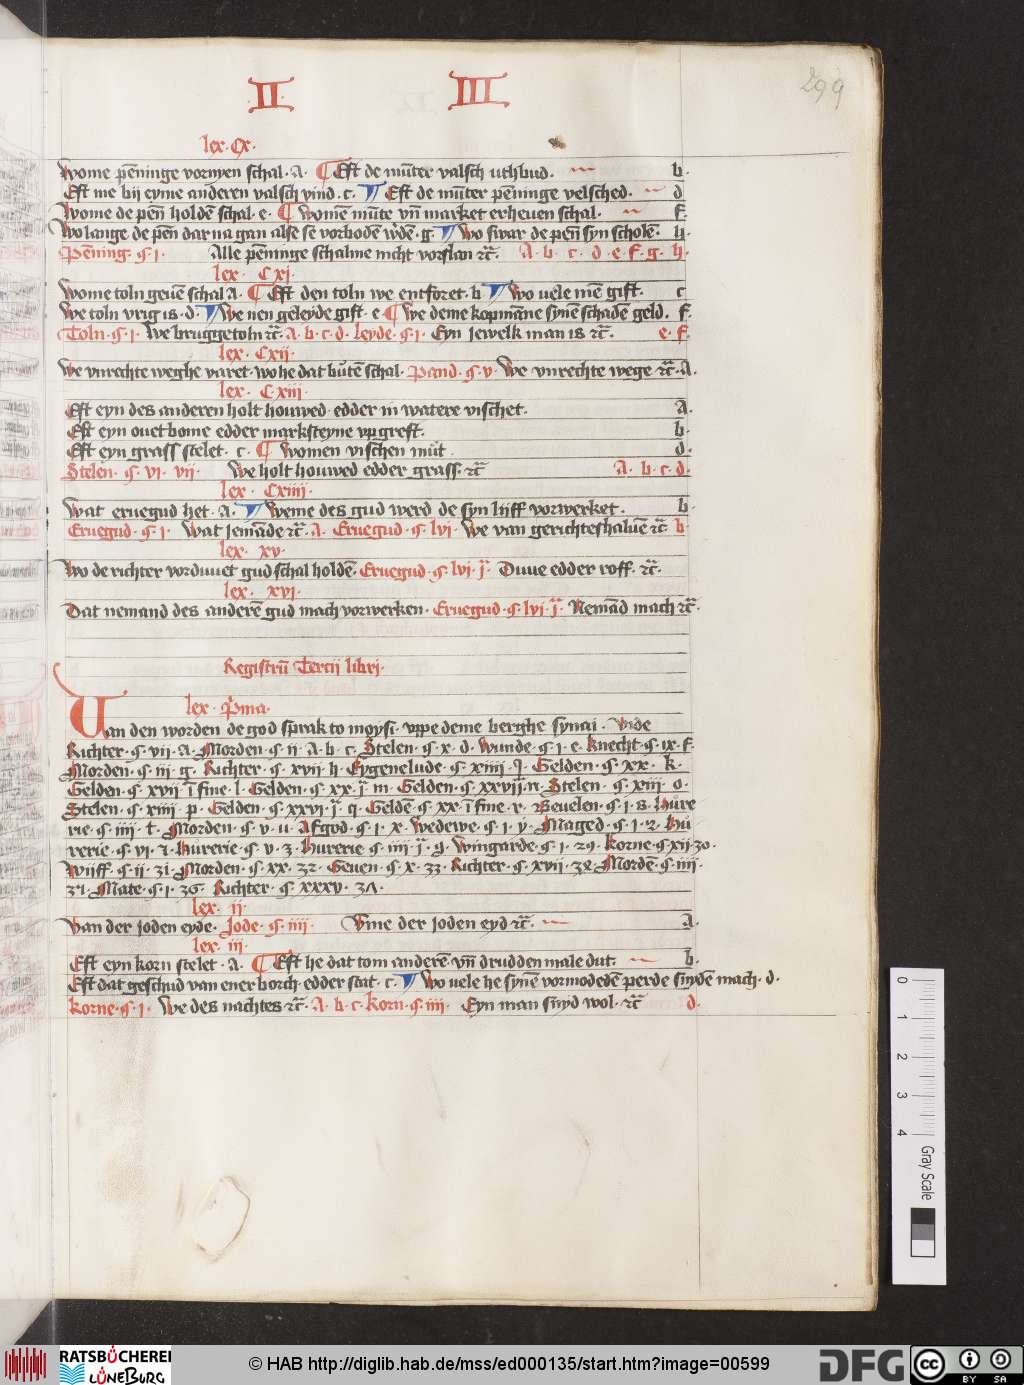 II III 299
lex · Cx ·
Wome pēninge vornyen schal · A · ¶ Eft de mūter valsch uthbud . b.
Eft me bij eyme anderen valsch vind . c . ¶ Eft de mūter pēninge velsched . d
Wome de pēn holdē schal · e · ¶ Womē mūte vn̄ market erheuen schal . f.
Wo lange de pēn dar na gan alse se vorbodē w'dē · g · ¶ Wo swar de pēn syn scholē . h.
Pēning · ꝯ · i · Alle pēninge schalme nicht vorslan ⁊c̄ . A · b · c · d · e · f · g · h ·
lex · C xi ·
Wome toln geuē schal A · ¶ Eft den toln we entforet · b ¶ Wo uele mē gift . c
We toln vrig is · d · ¶ We nen geleyde gift · e ¶ We deme kopmāne synē schadē geld . f.
Toln · ꝯ · i · We bruggetoln ⁊c̄ · A · b · c · d · leyde · ꝯ · i · Eyn jewelk man is ⁊c̄ . e · f.
lex · Cxii ·
We vnrechte weghe varet · wo he dat būtē schal · Pand · ꝯ · v · We vnrechte wege ⁊c̄ · A.
lex · C xiii ·
Eft eyn des anderen holt houwed · edder in watere vischet . a.
Eft eyn ouet bome edder marksteyne vpgreft . b.
Eft eyn grass stelet · c · ¶ Women vischen mūt . d.
Stelen · ꝯ · vi · vii · We holt houwed edder grass ⁊c̄ A · b · c · d.
lex · Cxiiii ·
Wat eruegud het · A · ¶ Weme des gud werd de syn lijff vorwerket . b.
Eruegud · ꝯ · i · Wat jemāde ⁊c̄ · A · Eruegud · ꝯ · lvi · We van gerichteshaluē ⁊c̄ b
lex · xv ·
Wo de richter vorduuet gud schal holdē · Eruegud · ꝯ · lvi · j̄ · Duue edder roff · ⁊c̄ .
lex · xvi ·
Dat nemand des anderē gud mach vorwerken · Eruegud · ꝯ · lvi · j̄ · Nemād mach ⁊c̄ .
Registrū Tercii libri ·
lex · P̄ma ·
Van den worden de god sprak to moysi · vppe deme berghe synai · Vide
Richter · ꝯ · vii · A · Morden · ꝯ · ii · A · b · c · Stelen · ꝯ · x · d · Wunde · ꝯ · i · e · Knecht · ꝯ · ix · f ·
Morden · ꝯ · iii · g · Richter · ꝯ · xvii · h · Eygenelude · ꝯ · xiiii · j · Gelden · ꝯ · xx · k ·
Gelden · ꝯ · xvii ī fine · l · Gelden · ꝯ · xx · j̄ · m · Gelden · ꝯ · xxvii · n · Stelen · ꝯ · xiii · o ·
Stelen · ꝯ · xiiii · p · Gelden · ꝯ · xxvi · j̄ · q · Geldē · ꝯ · xx · ī fine · r · Beuelen · ꝯ · i · s · Hure
rie · ꝯ · iiii · t · Morden · ꝯ · v · u · Afgod · ꝯ · i · x · Wedewe · ꝯ · i · y · Maged · ꝯ · i · z · Hu
rerie · ꝯ · vi · ⁊ · Hurerie · ꝯ · v · 3 · Hurerie · ꝯ · iiii · j̄ · 9 · Wingarde · ꝯ · i · 29 · Korne · ꝯ · xii · 30 ·
Wijff · ꝯ · ii · 31 · Morden · ꝯ · xx · 32 · Geuen · ꝯ · x · 33 · Richter · ꝯ · xvii · 38 · Mordē · ꝯ · iiii ·
31 · Mate · ꝯ · i · 36 · Richter · ꝯ · xxxv · 37 ·
lex · ii ·
Van der joden eyde · Jode · ꝯ · iiii · Vme der joden eyd ⁊c̄ . a.
lex · iii ·
Eft eyn korn stelet · A · ¶ Eft he dat tom anderē vn̄ drudden male dut . b.
Eft dat geschud van ener borch edder stat · c · ¶ Wo uele he synē vormodedē perde snydē mach · d ·
Korne · ꝯ · i · We des nachtes ⁊c̄ · A · b · c · Korn · ꝯ · iiii · Eyn man snyd wol · ⁊c̄ d.
0 1 2 3 4 Gray Scale
RATSBÜCHEREI
LÜNEBURG
© HAB http://diglib.hab.de/mss/ed000135/start.htm?image=00599
DFG
cc BY SA